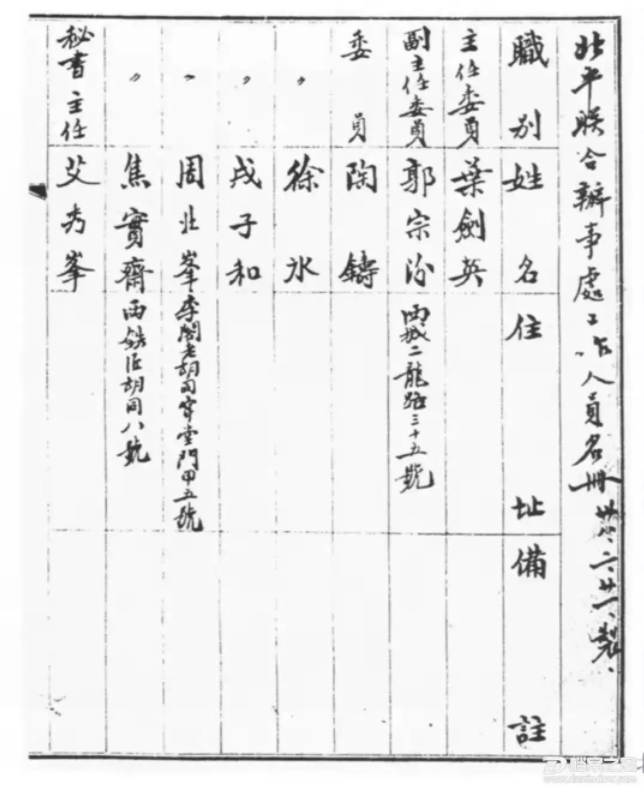 北平联合辦事處工作人員名冊 卅八、二、廿一、製、
職別 姓名 住址 備註
主任委員 葉劍英
副主任委員 郭宗汾 西城二龍路三十五號
委員 陶鑄
〃 徐冰
〃 戎子和
〃 周北峯 李閣老胡同穿堂門甲五號
〃 焦實齋 西鉄匠胡同八號
秘書主任 艾秀峯